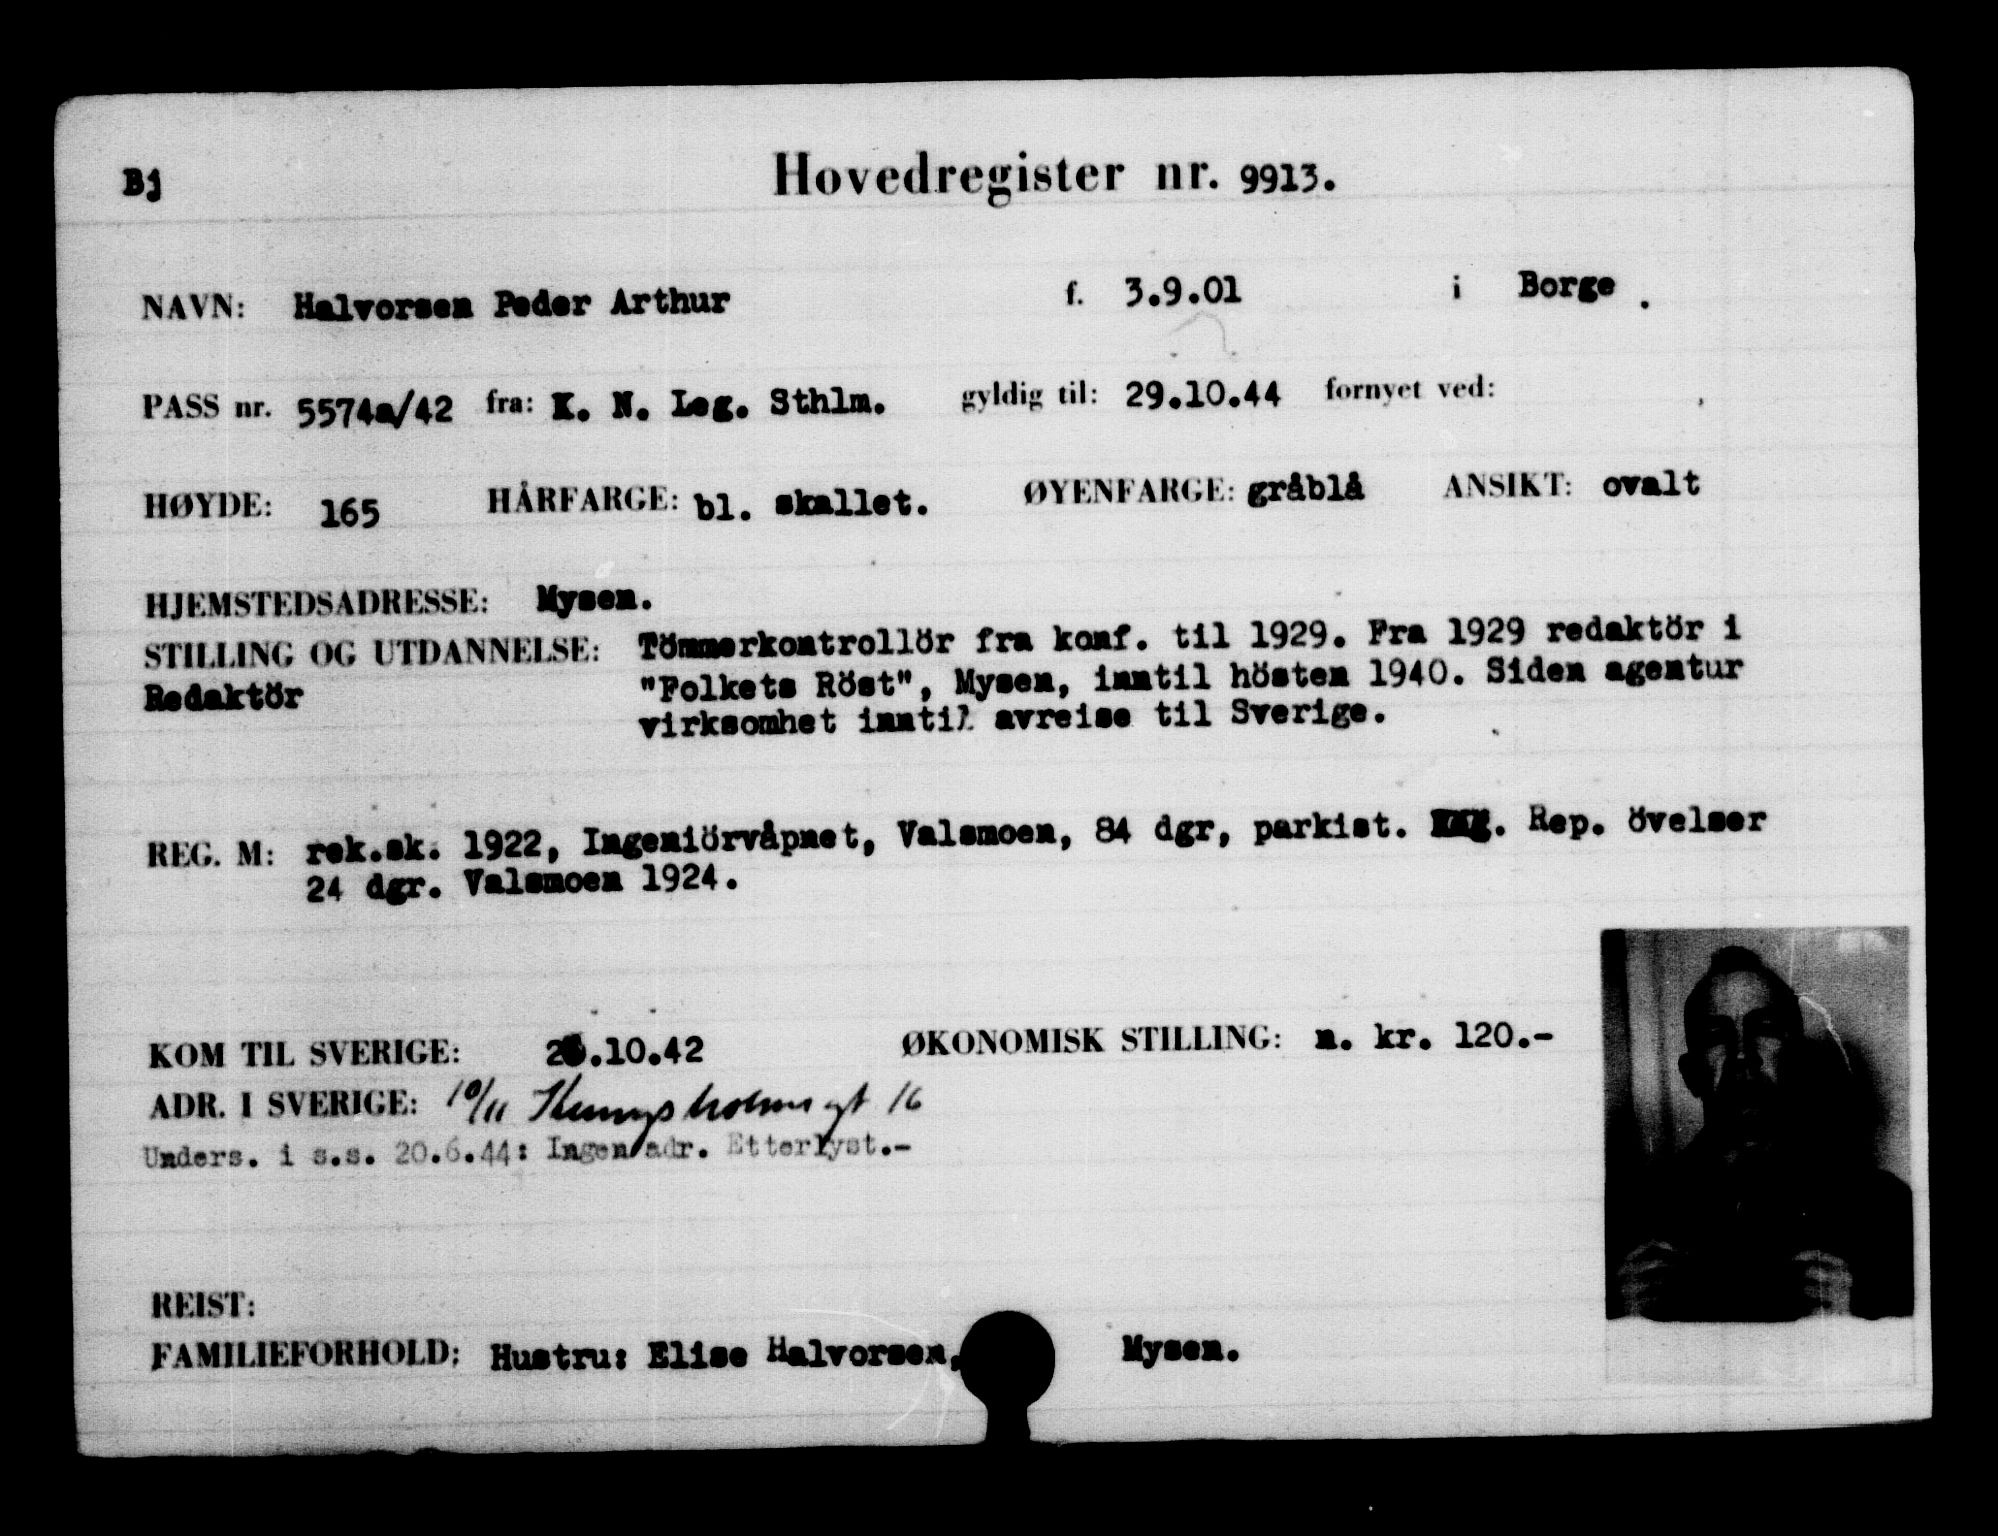 Bj
Hovedregister nr. 9913.
NAVN: Halvorsen Peder Arthur f. 3.9.01 i Borge .
PASS nr. 5574a/42 fra: K. N. Leg. Sthlm. gyldig til: 29.10.44 fornyet ved:
HØYDE: 165 HÅRFARGE: bl. skallet. ØYENFARGE: gråblå ANSIKT: ovalt
HJEMSTEDSADRESSE: Mysen.
STILLING OG UTDANNELSE: Tömmerkontrollör fra konf. til 1929. Fra 1929 redaktör i
Redaktör "Folkets Röst", Mysen, inntil hösten 1940. Siden agentur
virksomhet inntil avreise til Sverige.
REG. M: rek.sk. 1922, Ingeniörvåpnet, Valsmoen, 84 dgr, parkist. Rep. övelser
24 dgr. Valsmoen 1924.
KOM TIL SVERIGE: .10.42 ØKONOMISK STILLING: n. kr. 120.-
ADR. I SVERIGE: 10/11 16
Unders. i s.s. 20.6.44: Ingen adr. Etterlyst.-
REIST:
FAMILIEFORHOLD: Hustru: Elise Halvorsen, Mysen.